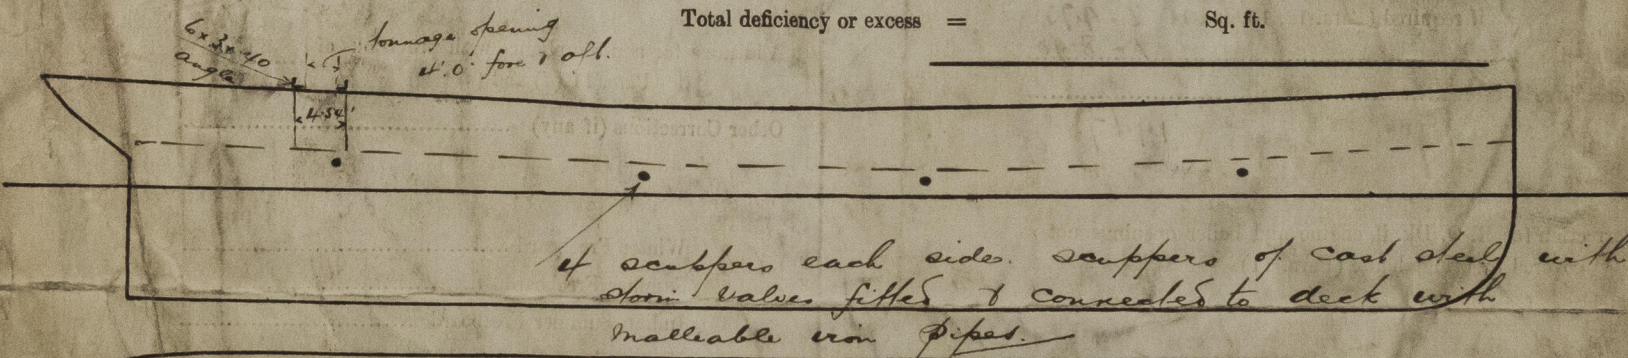 Total deficiency or excess = Sq. ft.
6 x 3 x .40
angle
tonnage opening
4'.0" fore & aft.
4.54'
4 scuppers each side. scuppers of cast steel with
storm valves fitted & connected to deck with
malleable iron pipes.